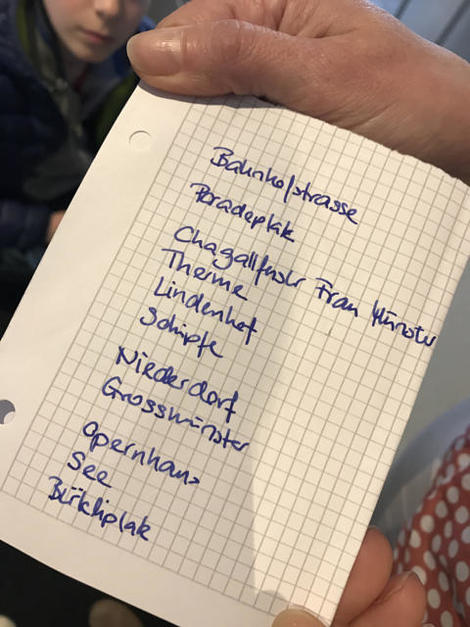 Bahnhofstrasse
Paradeplatz
Chagallfenster Frau Münster
Therme
Lindenhof
Schipfe
Niederdorf
Grossmünster
Opernhaus
See
Bürkliplatz